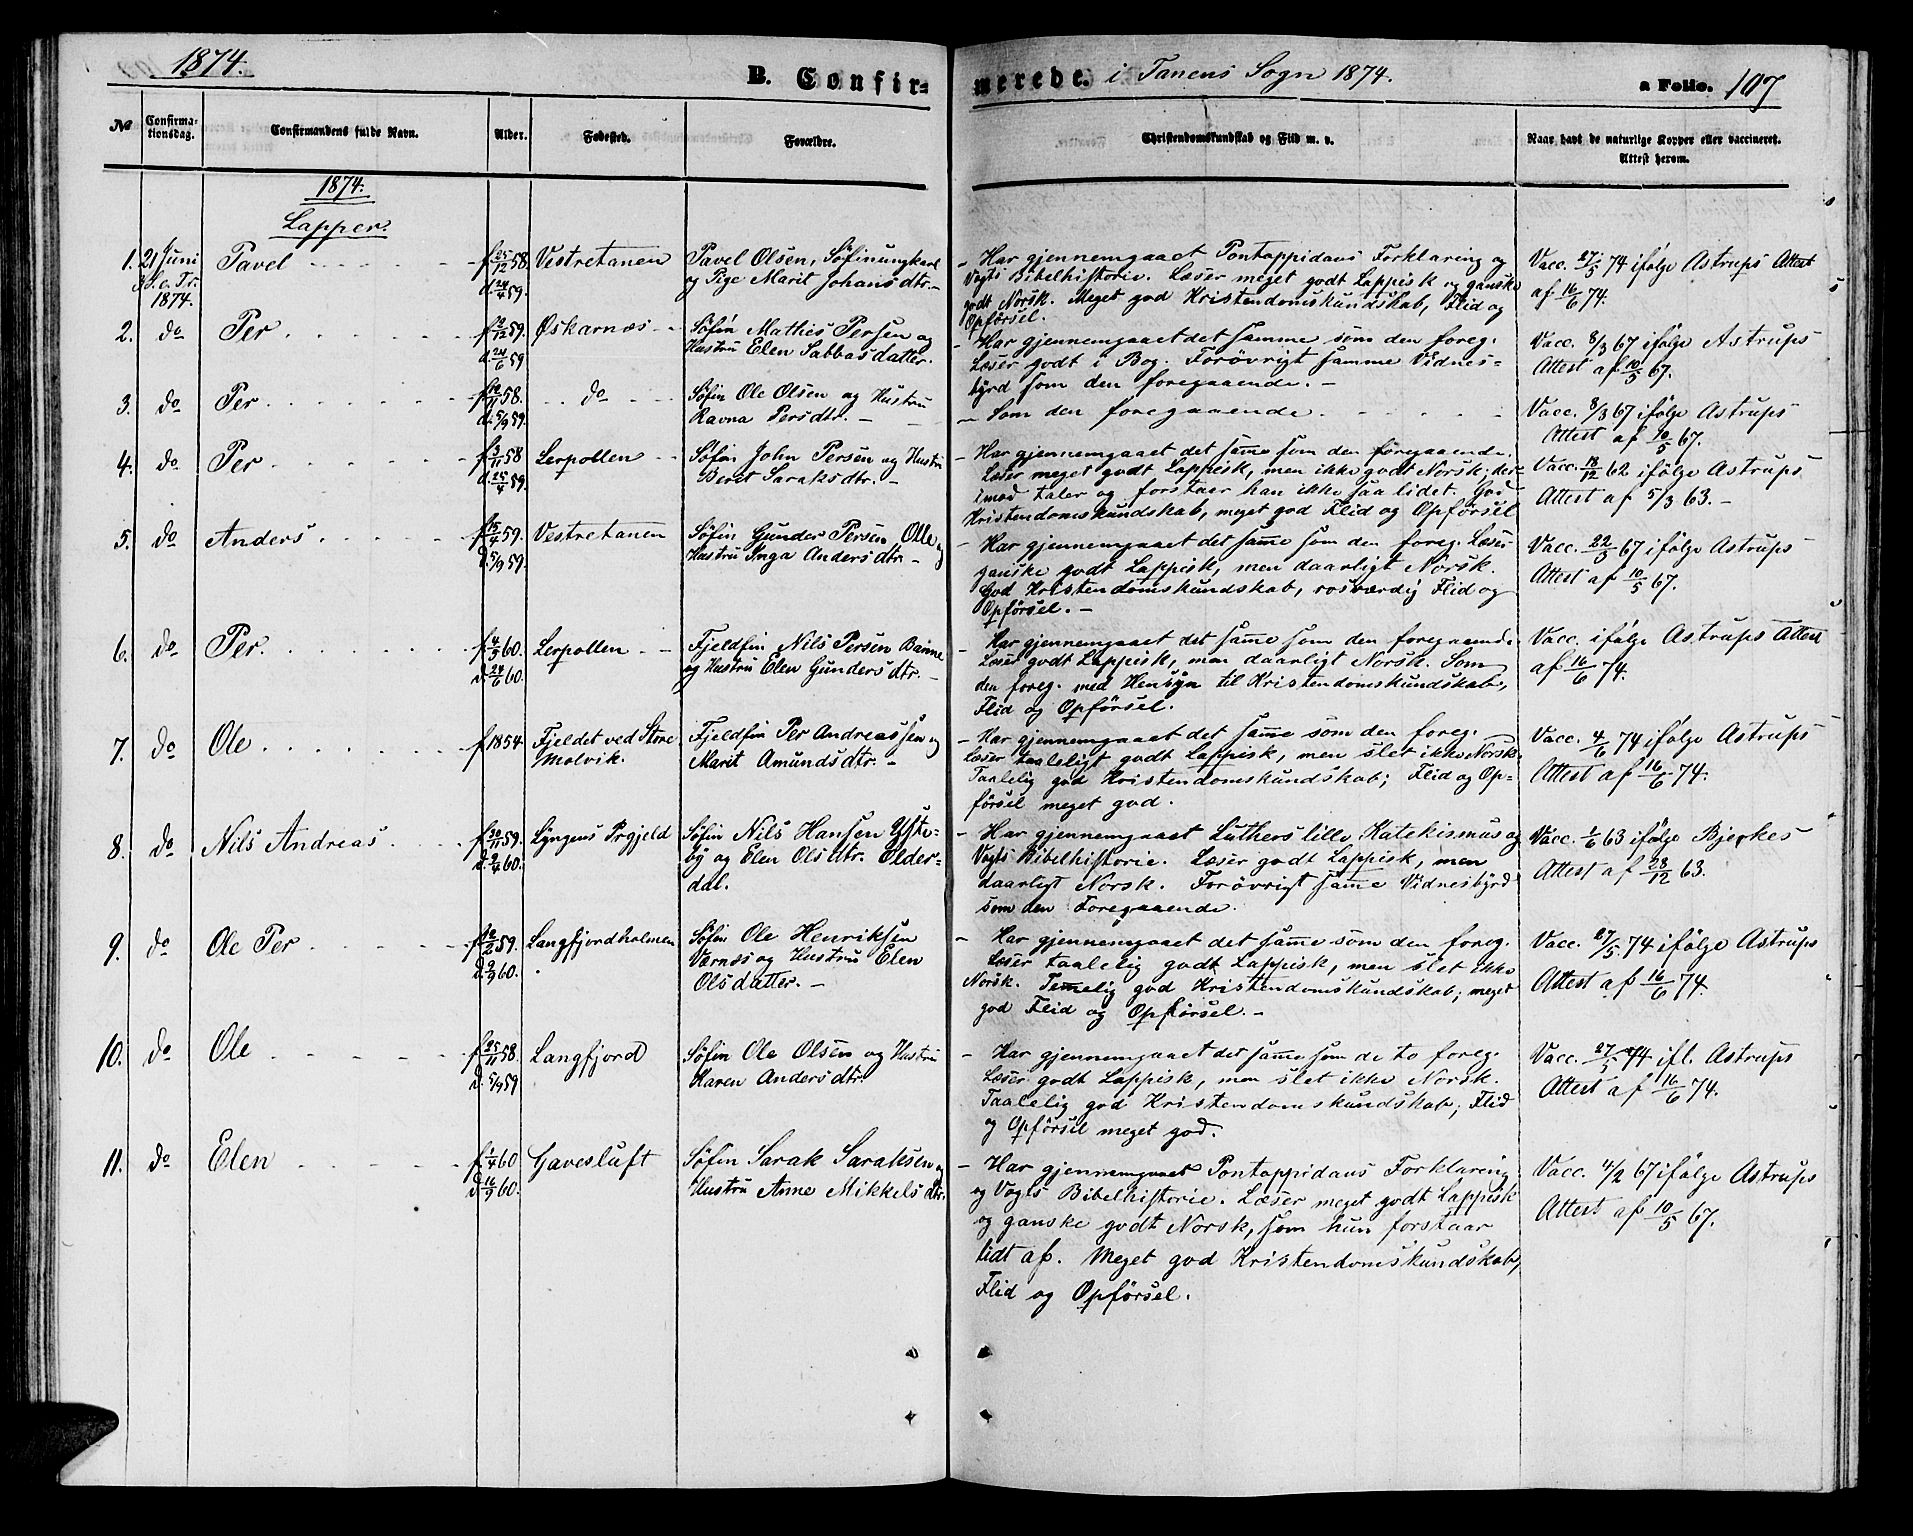 1874.
B. Confir=
merede. i Tanens Sogn 1874.
a Folio. 107
No
Confirma-
tionsdag.
Confirmandens fulde Navn.
Alder.
Fødested.
Forældre.
Christendomskundskab og Flid m. v.
Naar havt de naturlige Kopper eller vaccineret.
Attest herom.
1874.
Lapper.
1. 21 Juni
3 S. e. Tr.
1874.
Pavel
f 25/12 58.
d. 24/4 59.
Vestretanen
Pavel Olsen, Söfinungkarl
og Pige Marit Johansdtr. -
- Har gjennemgaaet Pontoppidans Forklaring og
Vogts Bibelhistorie. Læser meget godt Lappisk og ganske
godt Norsk. Meget god Kristendomskundskab, Flid og
Opförsel.
Vacc. 27/5 74 ifölge Astrups Attest
af 16/6 74.
2. do Per
59.
d. 24/6 59
Oskarnæs
Söfin Mathis Persen og
Hustru Elen Sabbasdatter.
- Har gjennemgaaet det samme som den foreg.
Læser godt i Bog. Forövrigt samme Vidnes-
byrd som den foregaaende. -
Vacc. 8/3 67 ifölge Astrups
Attest af 10/5 67.
3. do Per
58.
d. 5/9 59.
do
Söfin Ole Olsen og Hustru
Ravna Persdtr. -
- Som den foregaaende.
Vacc. 8/3 67 ifölge Astrups
Attest af 10/5 67.
4. do Per
f 3/11 58
d. 25/4 59.
Lerpollen
Söfin John Persen og Hustru
Beret Saraksdtr. -
- Har gjennemgaaet det samme som den foregaaende.
Læser meget godt Lappisk, men ikke godt Norsk; der-
imod taler og forstaer han ikke saa lidet. God
Kristendomskundskab, meget god Flid og Opförsel
Vacc. 18/12 62 ifölge Astrups
Attest af 5/3 63. -
5. do Anders
f 15/4 59.
d. 5/9 59.
Vestretanen
Söfin Gunder Persen Olle og
Hustru Inga Andersdtr. -
- Har gjennemgaaet det samme som den foreg. Læser
ganske godt Lappisk, men daarligt Norsk.
God Kristendomskundskab, rosværdig Flid og
Opförsel. -
Vacc. 22/3 67 ifölge Astrups
Attest af 10/5 67.
6. do Per.
60.
d. 24/6 60.
Lerpollen
Fjeldfin Nils Persen Banne
og Hustru Elen Gundersdtr. -
- Har gjennemgaaet det samme som den foregaaende.
Læser godt Lappisk, men daarligt Norsk. Som
den foreg. med Hensyn til Kristendomskundskab,
Flid og Opförsel.
Vacc. ifölge Astrups Attest
af 16/6 74.
7. do Ole
f 1854.
Fjeldet ved Store
Molvik.
Fjeldfin Per Andreassen og
Marit Amundsdtr. -
- Har gjennemgaaet det samme som den foreg.
Læser taaleligt godt Lappisk, men slet ikke Norsk.
Taalelig god Kristendomskundskab; Flid og Op-
försel meget god.
Vacc. 4/6 74 ifölge Astrups
Attest af 16/6 74.
8. do Nils Andreas
f 30/11 59.
d. 9/4 60.
Lyngens Prgjeld
Söfin Nils Hansen Yste-
by og Elen Olsdtr. Older-
dal.
- Har gjennemgaaet Luthers lille Katekismus og
Vogts Bibelhistorie. Læser godt Lappisk, men
daarligt Norsk. Forövrigt samme Vidnesbyrd
som den Foregaaende.
Vacc. 1/6 63 ifölge Bjerkes
Attest af 28/12 63.
9. do Ole Per
59.
d. 2/9 60.
Langfjordholmen
Söfin Ole Henriksen
Værnæs og Hustru Elen
Olsdatter. -
- Har gjennemgaaet det samme som den foreg.
Læser taalelig godt Lappisk, men slet ikke
Norsk. Temelig god Kristendomskundskab; meget
god Flid og Opförsel. -
Vacc. 27/5 74 ifölge Astrups
Attest af 16/6 74.
10. do Ole
f 25/11 58.
d. 5/9 59
Langfjord
Söfin Ole Olsen og Hustru
Karen Andersdtr.
- Har gjennemgaaet det samme som de to foreg.
Læser godt Lappisk, men slet ikke Norsk.
Taalelig god Kristendomskundskab; Flid
og Opförsel meget god.
Vacc. 27/5 74 ifl. Astrups
Attest af 16/6 74.
11. do Elen
f 1/4 60
d. 16/9 60.
Gavesluft
Söfin Sarak Saraksen og
Hustru Anne Mikkelsdtr.
- Har gjennemgaaet Pontoppidans Forklaring
og Vogts Bibelhistorie. Læser meget godt Lappisk
og ganske godt Norsk, som hun forstaar
lidt af. Meget god Kristendomskundskab,
Flid og Opförsel.
Vacc. 4/2 67 ifölge Astrups
Attest af 10/5 67.